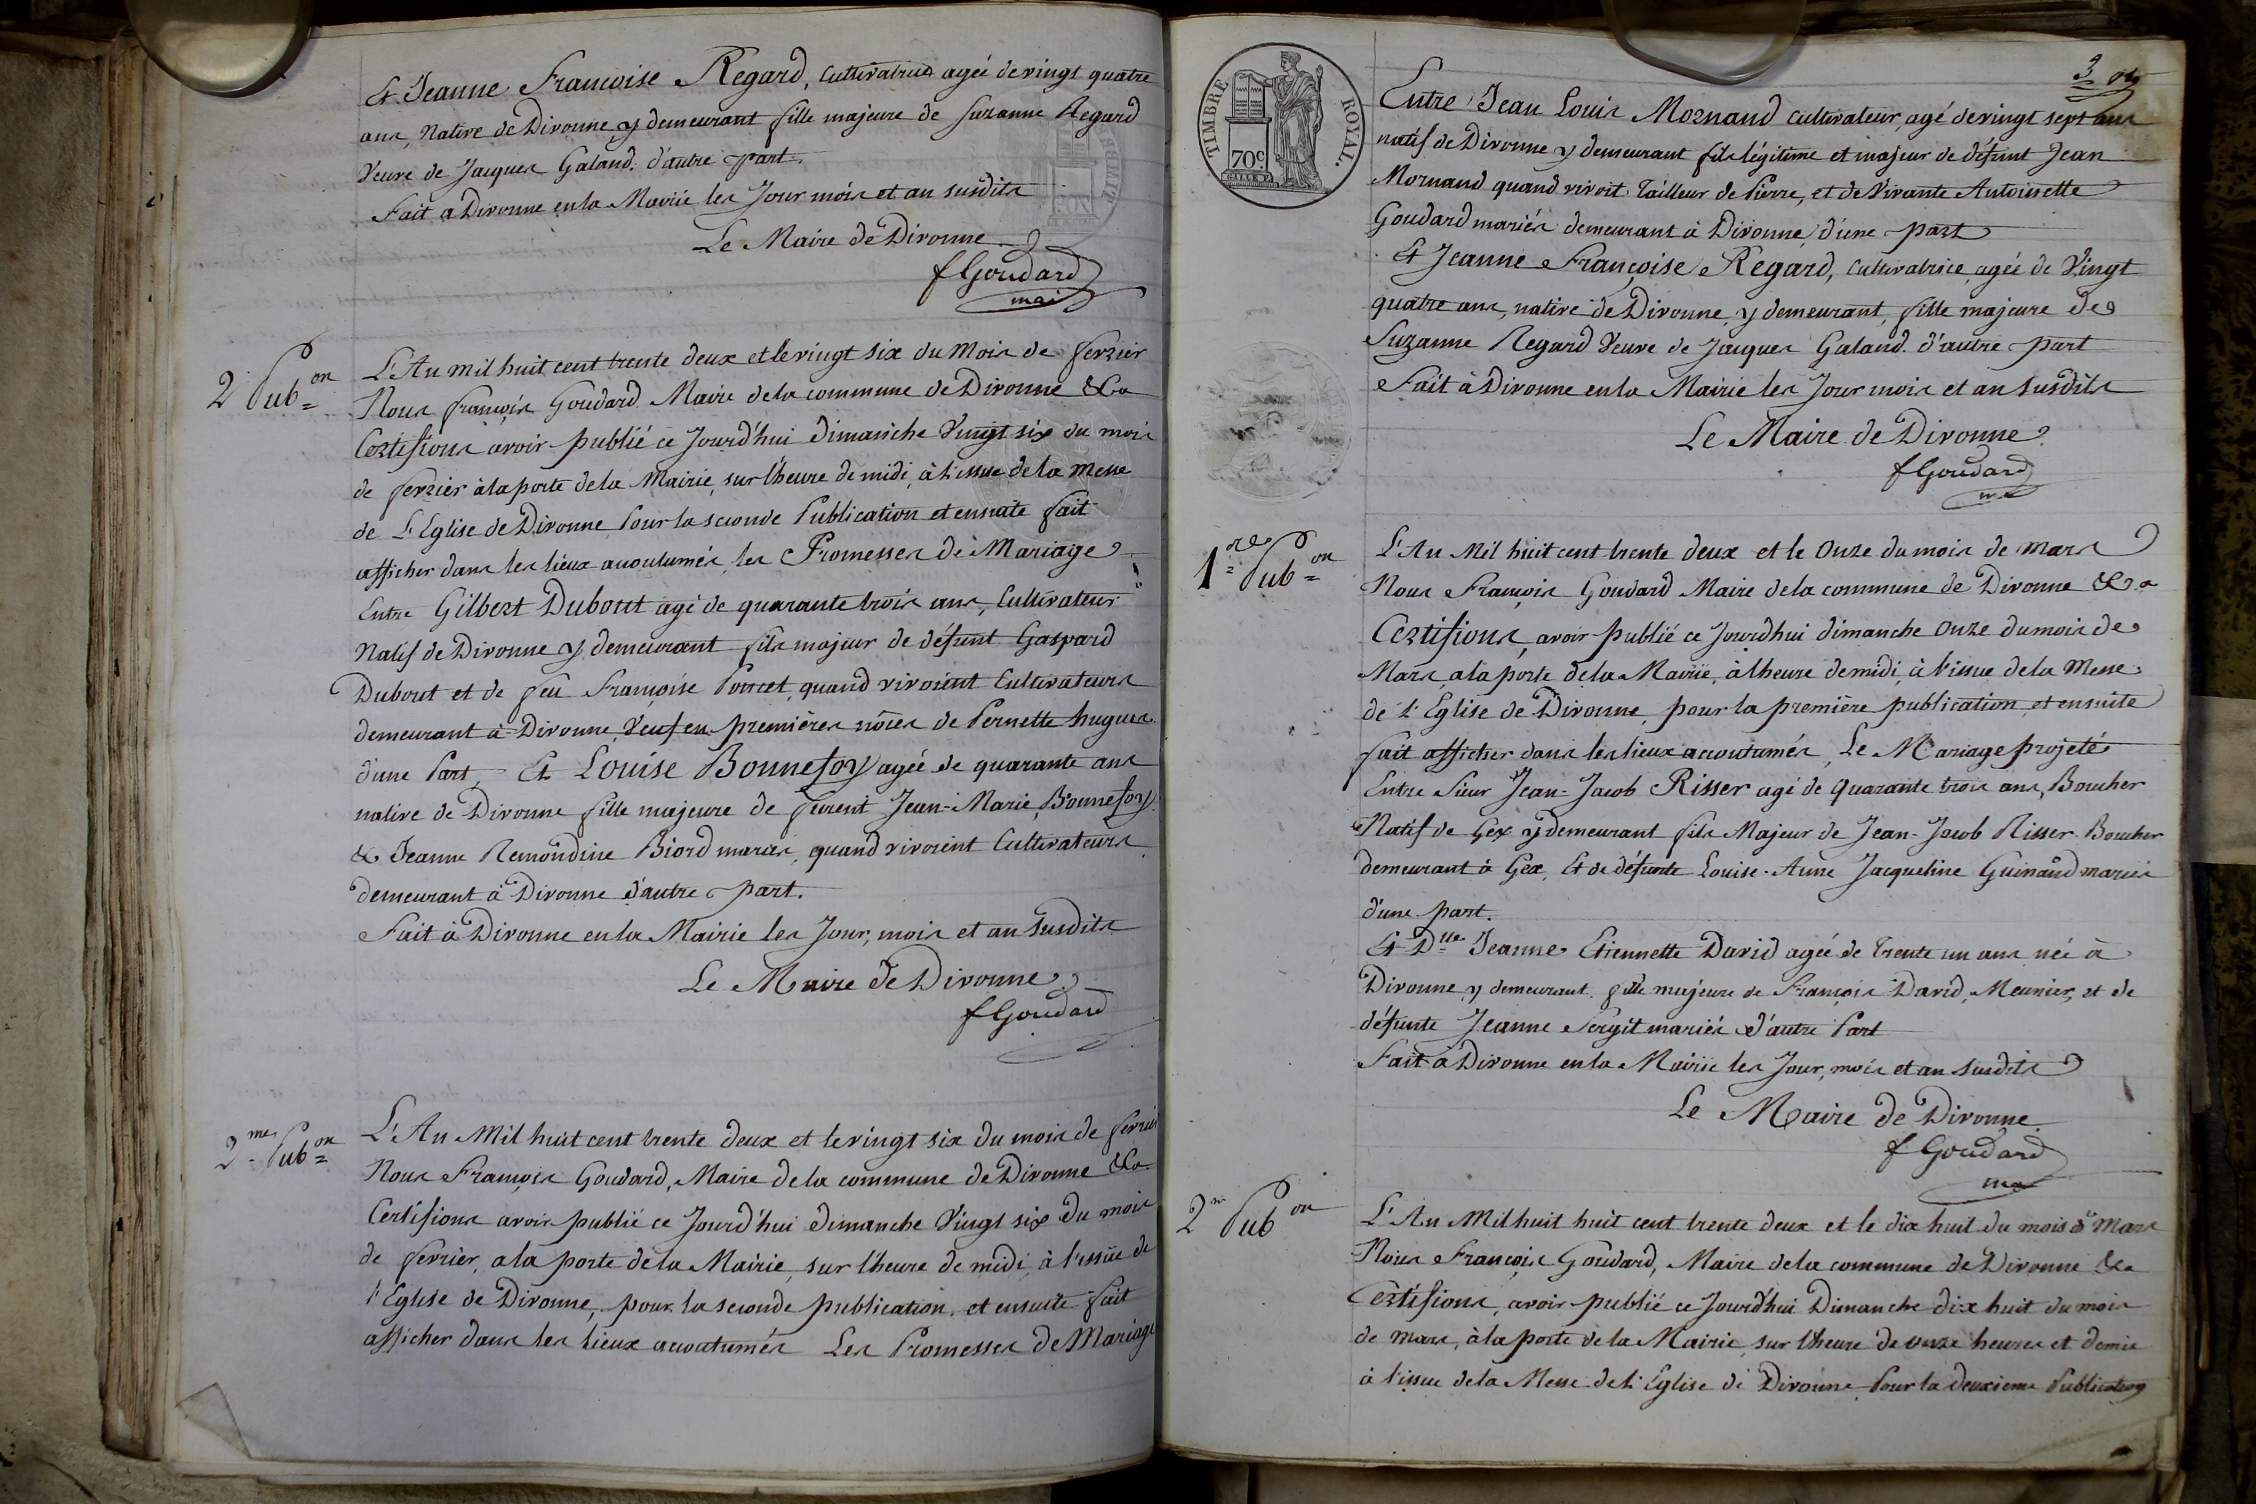 Et Jeanne Françoise Regard, Cultivatrice agée de vingt quatre
ans, Native de Divonne y demeurant fille majeure de Suzanne Regard
Veuve de Jacques Galand. d'autre part.
Fait a Divonne en la Mairie les Jour mois et an susdits
Le Maire de Divonne
f Goudard
mai
2 Pub.on
L'An mil huit cent trente deux et le vingt six du Mois de fevrier
Nous françois Goudard Maire de la commune de Divonne &a
Certifions avoir publié ce Jourd'hui dimanche Vingt six du mois
de fevrier à la porte de la Mairie, sur l'heure de midi, à l'issue de la Messe
de L'Eglise de Divonne Pour la seconde Publication et ensuite fait
afficher dans les lieux accoutumés, les Promesses de Mariage
Entre Gilbert Dubout agé de quarante trois ans, Cultivateur
Natif de Divonne y demeurant fils majeur de défunt Gaspard
Dubout et de feu Françoise Poncet, quand vivoient Cultivateurs
demeurant à Divonne, Veuf en premières nôces de Pernette hugues
d'une Part, Et Louise Bonnefoy agée de quarante ans
native de Divonne fille majeure de furent Jean-Marie Bonnefoy
& Jeanne Remondine Biord mariés, quand vivoient Cultivateurs
demeurant à Divonne d'autre part.
Fait à Divonne en la Mairie les Jour, mois et an susdits
Le Maire de Divonne
f Goudard
2.me Pub.on
L'An Mil huit cent trente deux et le vingt six du mois de fevrier
Nous François Goudard, Maire de la commune de Divonne &a
Certifions avoir publié ce Jourd'hui dimanche Vingt six du mois
de fevrier, a la porte de la Mairie, sur l'heure de midi, à l'issüe de
l'Eglise de Divonne, pour la seconde publication, et ensuite fait
afficher dans les lieux accoutumés Les Promesses de Mariage
3
TIMBRE ROYAL.
70c
Entre Jean Louis Mornand Cultivateur, agé de vingt sept ans
natif de Divonne y demeurant fils légitime et majeur de défunt Jean
Mornand quand vivoit Tailleur de Pierre, et de Vivante Antoinette
Goudard mariés demeurant à Divonne, d'une part
Et Jeanne Françoise Regard, Cultivatrice, agée de Vingt
quatre ans, native de Divonne, y demeurant, fille majeure de
Suzanne Regard Veuve de Jacques Galand. d'autre part
Fait à Divonne en la Mairie les Jour mois et an susdits
Le Maire de Divonne.
f Goudard
ma
1.re Pub.on
L'An Mil huit cent trente deux et le Onze du mois de Mars
Nous François Goudard Maire de la commune de Divonne &a
Certifions, avoir publié ce Jourd'hui dimanche Onze du mois de
Mars, a la porte de la Mairie, à l'heure de midi, à l'issue de la Messe
de l'Eglise de Divonne, pour la première publication, et ensuite
fait afficher dans les lieux accoutumés, Le Mariage projeté
Entre Sieur Jean-Jacob Risser agé de quarante trois ans, Boucher
Natif de Gex y demeurant fils Majeur de Jean-Jacob Risser Boucher
demeurant à Gex, Et de défunte Louise-Anne Jacqueline Guinand mariés
d'une part.
Et D.lle Jeanne Etiennette David agée de Trente un ans née à
Divonne y demeurant. fille majeure de François David, Meunier, et de
défunte Jeanne Sergit mariés d'autre Part
Fait à Divonne en la Mairie les Jour, mois et an susdits
Le Maire de Divonne.
f Goudard
ma
2.me Pub.on
L'An Mil huit huit cent trente deux et le dix huit du mois de Mars
Nous François Goudard, Maire de la commune de Divonne &a
Certifions, avoir publié ce Jourd'hui Dimanche dix huit du mois
de Mars, à la porte de la Mairie, sur l'heure de onze heures et demie
à l'issue de la Messe de L'Eglise de Divonne Pour la deuxieme Publication